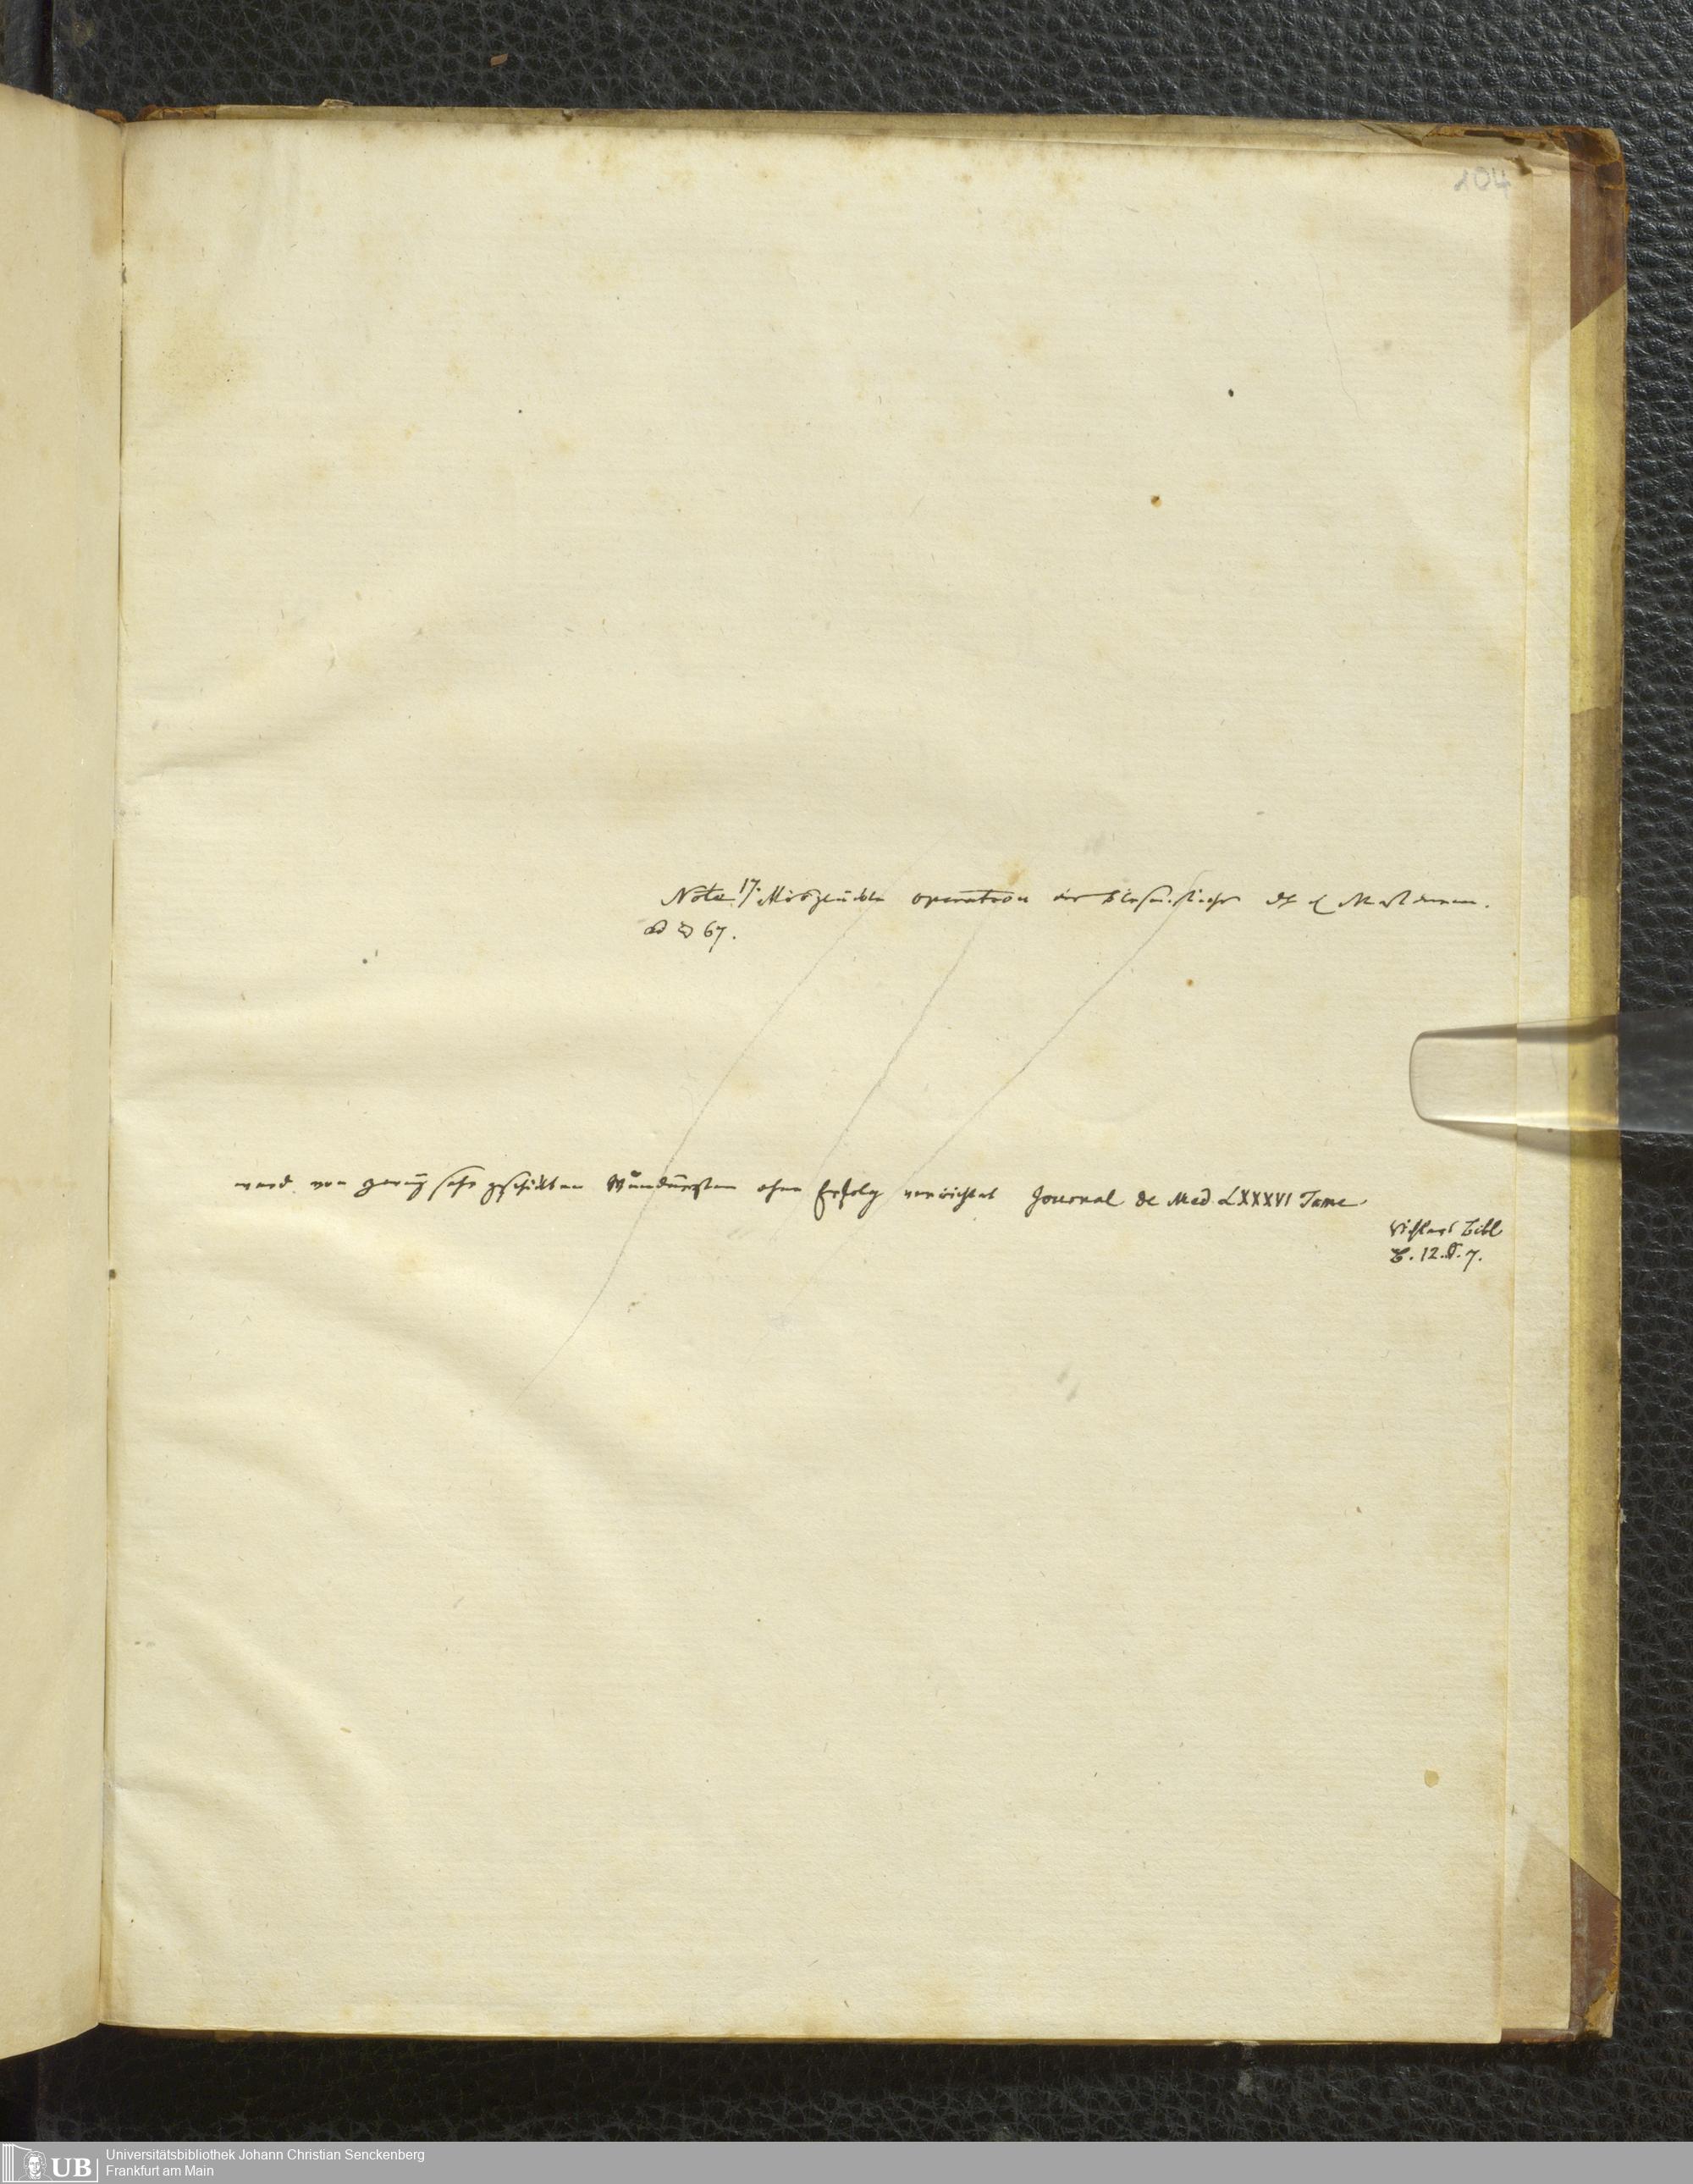 104
Note 17. Misglückte operation des Blasenstichs d
ad § 67.
ward von gewiß sehr geschickten Wundärzten ohne Erfolg verrichtet Journal de Med LXXXVI Tome.
Richters Bibl
B. 12. S. 7.
UB
Universitätsbibliothek Johann Christian Senckenberg
Frankfurt am Main